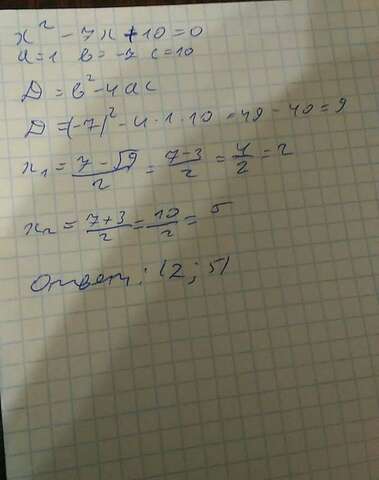 x² - 7x + 10 = 0
a = 1 b = -7 c = 10
D = b² - 4ac
D = (-7)² - 4 · 1 · 10 = 49 - 40 = 9
x₁ = (7 - √9)/2 = (7 - 3)/2 = 4/2 = 2
x₂ = (7 + 3)/2 = 10/2 = 5
Ответ: (2; 5)